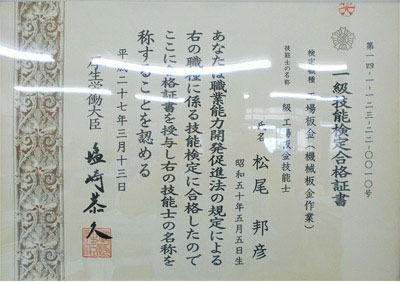 第一四-一-一二三-二二-〇〇一〇号
一級技能検定合格証書
検定職種 工場板金(機械板金作業)
技能士の名称 一級工場板金技能士
氏名 松尾 邦彦
昭和五十年五月五日生
あなたは職業能力開発促進法の規定による
右の職種に係る技能検定に合格したので
ここに合格証書を授与し右の技能士の名称を
称することを認める
平成二十七年三月十三日
厚生労働大臣 塩崎恭久